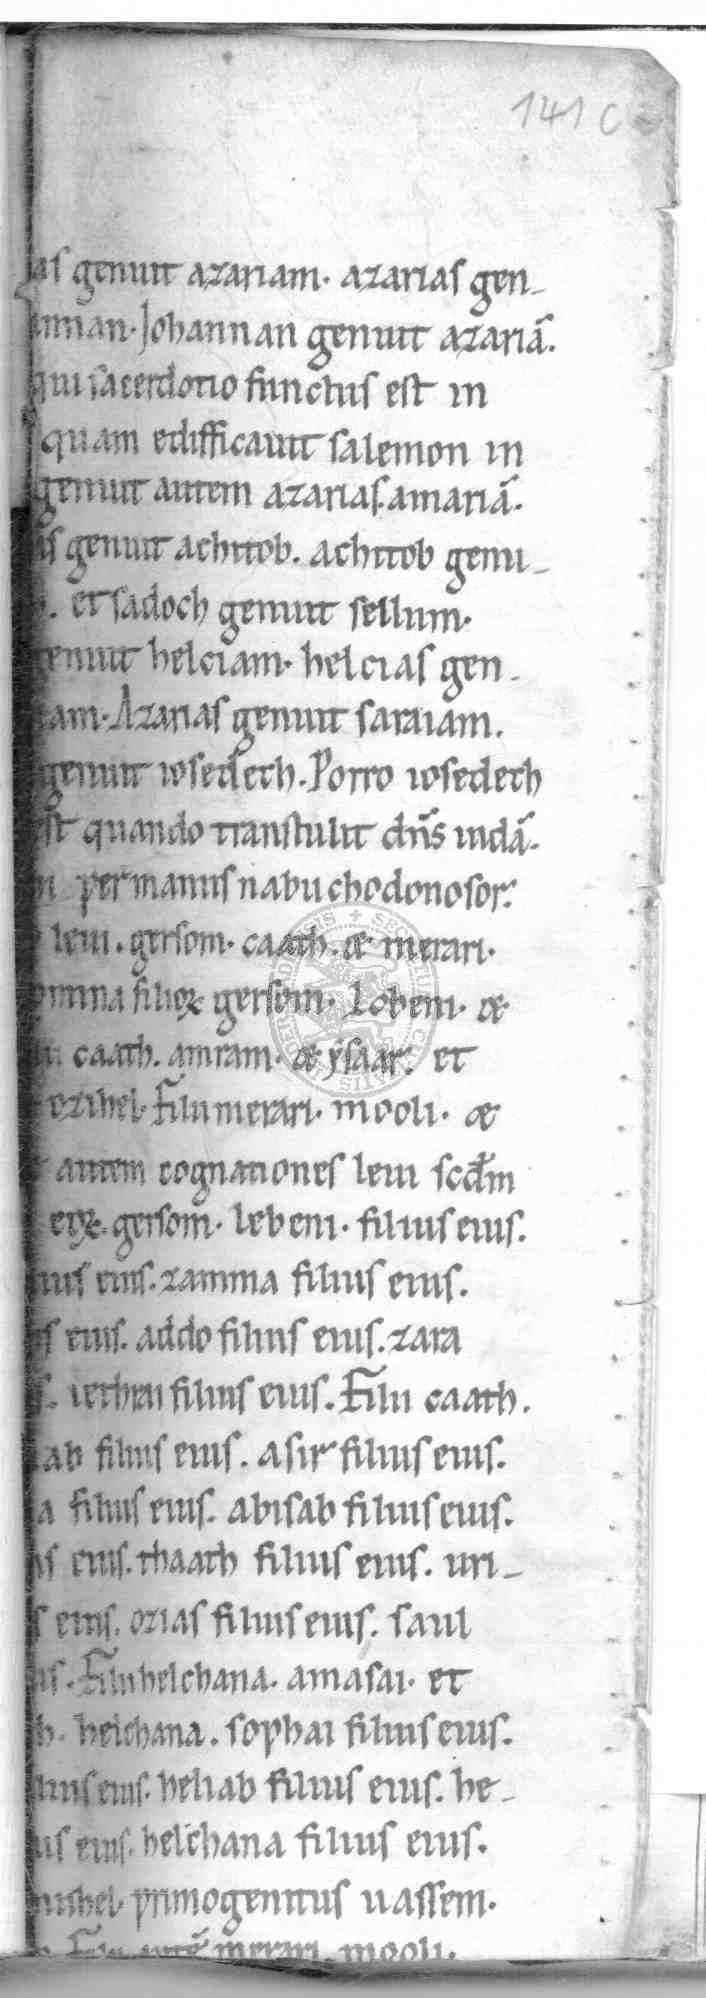 141 c
as genuit azariam. azarias gen-
annan. Johannan genuit azariā.
qui sacerdotio functus est in
quam edifficauit salemon in
genuit autem azarias. amariā.
as genuit achitob. achitob genu-
. et sadoch genuit sellum.
genuit helciam. helcias gen-
iam. Azarias genuit saraiam.
genuit iosedech. Porro iosedech
est quando transtulit dn̄s iudā.
per manus nabuchodonosor.
leui. gersom. caath. æ merari.
omina filioꝝ gersom. Lobeni. æ
caath. amram. æ ẏsaar. et
ozihel. Filii merari. mooli. æ
autem cognationes leui scd̄m
eoꝝ. gersom. lebeni. filius eius.
lius eius. zamma filius eius.
us eius. addo filius eius. zara
s. iethrai filius eius. Filii caath.
ab filius eius. asir filius eius.
a filius eius. abisab filius eius.
us eius. thaath filius eius. uri-
s eius. ozias filius eius. saul
us. Filii helchana. amasai. et
h. helchana. sophai filius eius.
lius eius. heliab filius eius. he-
us eius. helchana filius eius.
muhel. primogenitus uassem.
Filii autē merari. mooli.